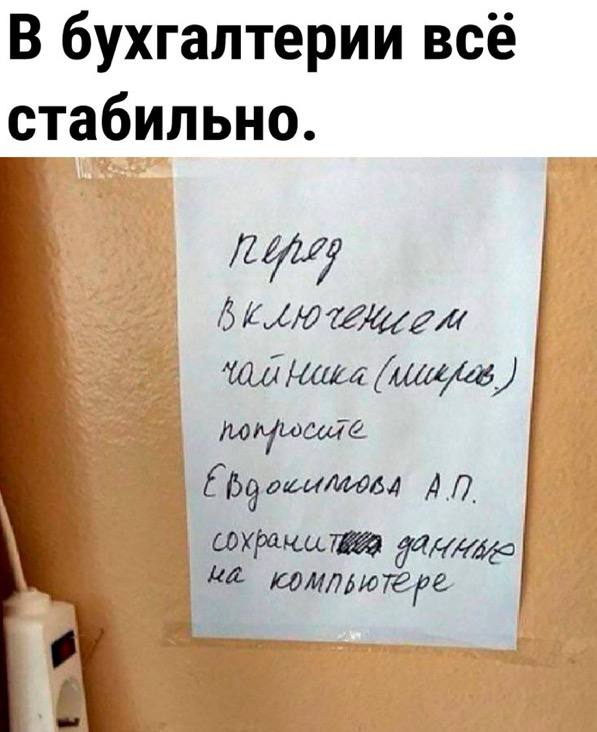 В бухгалтерии всё
стабильно.
перед
включением
чайника (микров.)
попросите
Евдокимова А.П.
сохранить данные
на компьютере